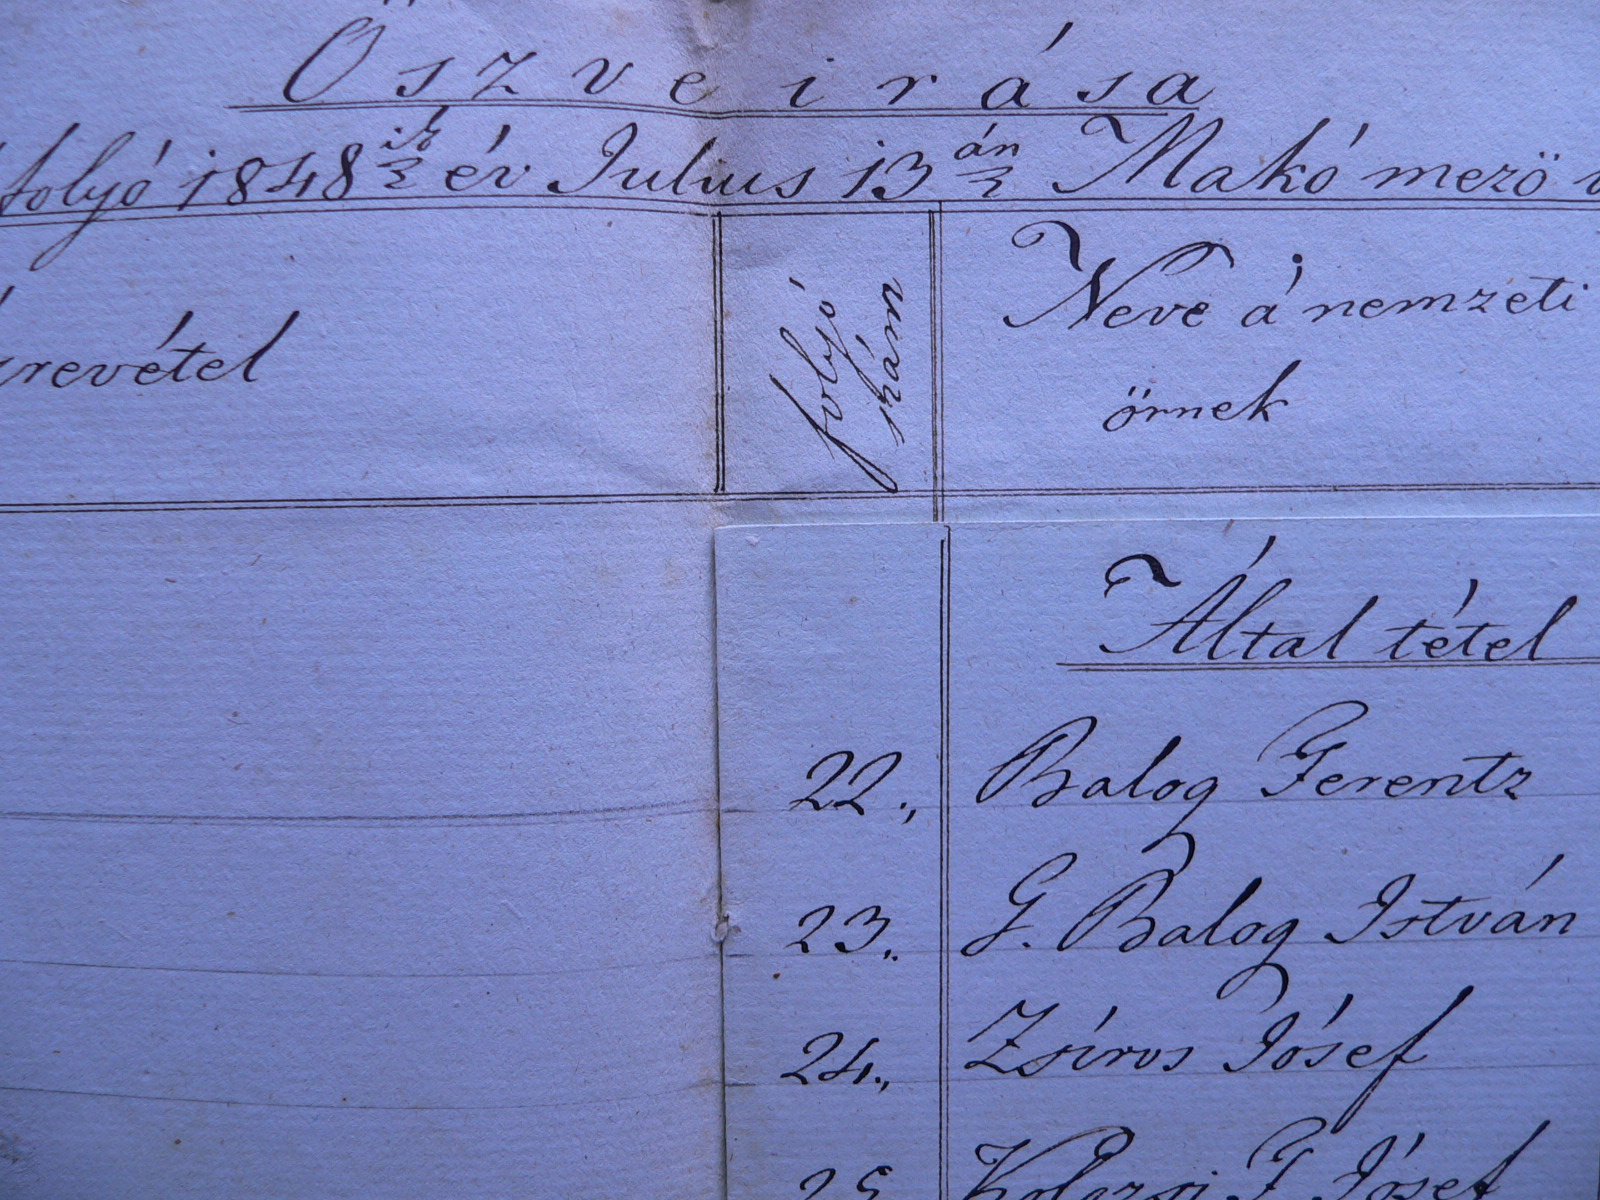 Öszveirása
folyó 1848ik év Julius 13án Makó mező
revétel
folyó szám
Neve a' nemzeti
őrnek
Által tétel
22., Balog Ferentz
23., G. Balog István
24., Zsíros Jósef
25 F Jósef